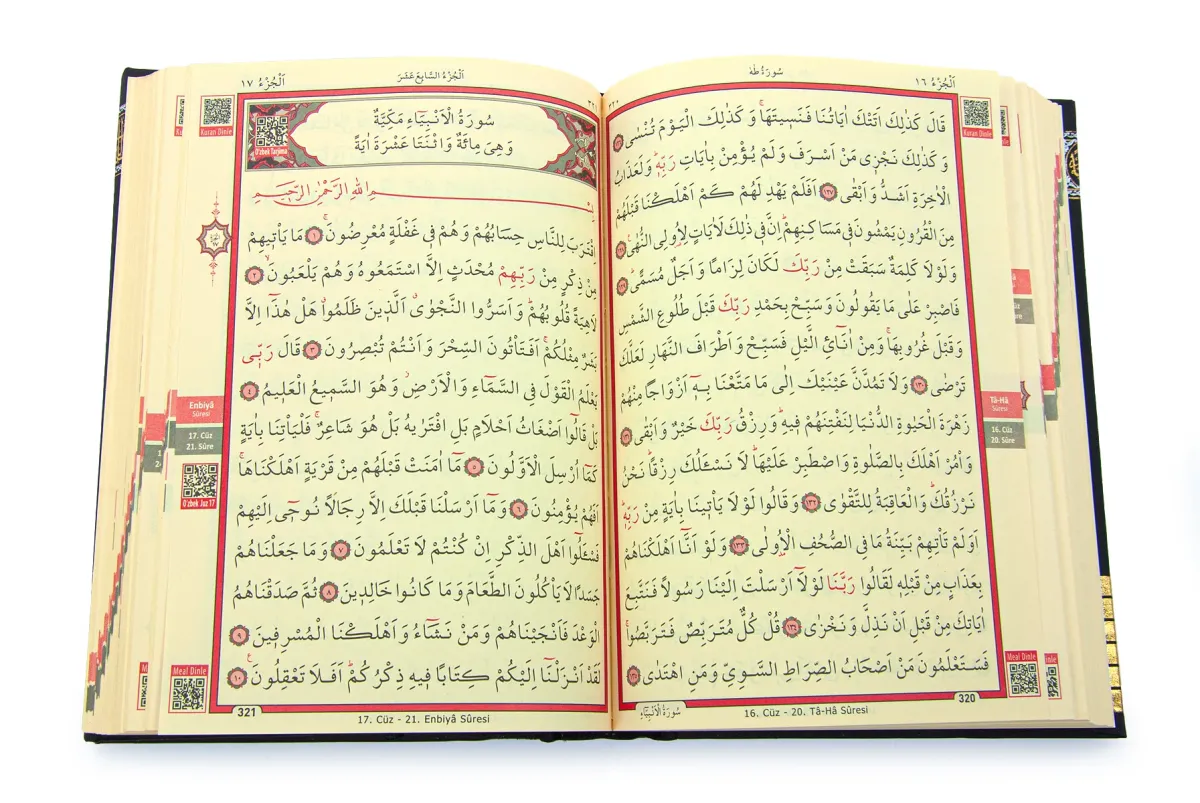 اَلْجُزْءُ ١٦
سُورَةُ طٰهٰ
Kuran Dinle
قَالَ كَذٰلِكَ اَتَتْكَ اٰيَاتُنَا فَنَسٖيتَهَاۚ وَ كَذٰلِكَ الْيَوْمَ تُنْسٰى ﴿١٢٦﴾
وَ كَذٰلِكَ نَجْزٖى مَنْ اَسْرَفَ وَ لَمْ يُؤْمِنْ بِاٰيَاتِ رَبِّهٖؕ وَ لَعَذَابُ
الْاٰخِرَةِ اَشَدُّ وَ اَبْقٰى ﴿١٢٧﴾ اَفَلَمْ يَهْدِ لَهُمْ كَمْ اَهْلَكْنَا قَبْلَهُمْ
مِنَ الْقُرُونِ يَمْشُونَ فٖى مَسَاكِنِهِمْؕ اِنَّ فٖى ذٰلِكَ لَاٰيَاتٍ لِاُولِى النُّهٰى ﴿١٢٨﴾
وَ لَوْ لَا كَلِمَةٌ سَبَقَتْ مِنْ رَبِّكَ لَكَانَ لِزَامًا وَ اَجَلٌ مُسَمًّى ﴿١٢٩﴾
فَاصْبِرْ عَلٰى مَا يَقُولُونَ وَ سَبِّحْ بِحَمْدِ رَبِّكَ قَبْلَ طُلُوعِ الشَّمْسِ
وَ قَبْلَ غُرُوبِهَاۚ وَ مِنْ اٰنَآئِ الَّيْلِ فَسَبِّحْ وَ اَطْرَافَ النَّهَارِ لَعَلَّكَ
تَرْضٰى ﴿١٣٠﴾ وَ لَا تَمُدَّنَّ عَيْنَيْكَ اِلٰى مَا مَتَّعْنَا بِهٖٓ اَزْوَاجًا مِنْهُمْ
زَهْرَةَ الْحَيٰوةِ الدُّنْيَا لِنَفْتِنَهُمْ فٖيهِؕ وَ رِزْقُ رَبِّكَ خَيْرٌ وَ اَبْقٰى ﴿١٣١﴾
وَ اْمُرْ اَهْلَكَ بِالصَّلٰوةِ وَ اصْطَبِرْ عَلَيْهَاؕ لَا نَسْـَٔلُكَ رِزْقًاؕ نَحْنُ
نَرْزُقُكَؕ وَ الْعَاقِبَةُ لِلتَّقْوٰى ﴿١٣٢﴾ وَ قَالُوا لَوْ لَا يَاْتٖينَا بِاٰيَةٍ مِنْ رَبِّهٖؕ
اَوَ لَمْ تَاْتِهِمْ بَيِّنَةُ مَا فِى الصُّحُفِ الْاُولٰى ﴿١٣٣﴾ وَ لَوْ اَنَّٓا اَهْلَكْنَاهُمْ
بِعَذَابٍ مِنْ قَبْلِهٖ لَقَالُوا رَبَّنَا لَوْ لَٓا اَرْسَلْتَ اِلَيْنَا رَسُولًا فَنَتَّبِعَ
اٰيَاتِكَ مِنْ قَبْلِ اَنْ نَذِلَّ وَ نَخْزٰى ﴿١٣٤﴾ قُلْ كُلٌّ مُتَرَبِّصٌ فَتَرَبَّصُواۚ
فَسَتَعْلَمُونَ مَنْ اَصْحَابُ الصِّرَاطِ السَّوِىِّ وَ مَنِ اهْتَدٰى ﴿١٣٥﴾
Tâ-Hâ
Sûresi
16. Cüz
20. Sûre
Meal Dinle
320
16. Cüz - 20. Tâ-Hâ Sûresi
سُورَةُ الْاَنْبِيَٓاءِ
اَلْجُزْءُ السَّابِعَ عَشَرَ
اَلْجُزْءُ ١٧
Kuran Dinle
O'zbek Tarjima
سُورَةُ الْاَنْبِيَٓاءِ مَكِّيَّةٌ
وَ هِىَ مِائَةٌ وَ اثْنَتَا عَشْرَةَ اٰيَةً
بِسْمِ اللّٰهِ الرَّحْمٰنِ الرَّحٖيمِ
اِقْتَرَبَ لِلنَّاسِ حِسَابُهُمْ وَ هُمْ فٖى غَفْلَةٍ مُعْرِضُونَۚ ﴿١﴾ مَا يَاْتٖيهِمْ
مِنْ ذِكْرٍ مِنْ رَبِّهِمْ مُحْدَثٍ اِلَّا اسْتَمَعُوهُ وَ هُمْ يَلْعَبُونَۙ ﴿٢﴾
لَاهِيَةً قُلُوبُهُمْؕ وَ اَسَرُّوا النَّجْوٰىۗ اَلَّذٖينَ ظَلَمُواۗ هَلْ هٰذَٓا اِلَّا
بَشَرٌ مِثْلُكُمْۚ اَفَتَاْتُونَ السِّحْرَ وَ اَنْتُمْ تُبْصِرُونَ ﴿٣﴾ قَالَ رَبّٖى
يَعْلَمُ الْقَوْلَ فِى السَّمَٓاءِ وَ الْاَرْضِۘ وَ هُوَ السَّمٖيعُ الْعَلٖيمُ ﴿٤﴾
بَلْ قَالُٓوا اَضْغَاثُ اَحْلَامٍ بَلِ افْتَرٰيهُ بَلْ هُوَ شَاعِرٌۚ فَلْيَاْتِنَا بِاٰيَةٍ
كَمَٓا اُرْسِلَ الْاَوَّلُونَ ﴿٥﴾ مَٓا اٰمَنَتْ قَبْلَهُمْ مِنْ قَرْيَةٍ اَهْلَكْنَاهَاۚ
اَفَهُمْ يُؤْمِنُونَ ﴿٦﴾ وَ مَٓا اَرْسَلْنَا قَبْلَكَ اِلَّا رِجَالًا نُوحٖٓى اِلَيْهِمْ
فَسْـَٔلُٓوا اَهْلَ الذِّكْرِ اِنْ كُنْتُمْ لَا تَعْلَمُونَ ﴿٧﴾ وَ مَا جَعَلْنَاهُمْ
جَسَدًا لَا يَاْكُلُونَ الطَّعَامَ وَ مَا كَانُوا خَالِدٖينَ ﴿٨﴾ ثُمَّ صَدَقْنَاهُمُ
الْوَعْدَ فَاَنْجَيْنَاهُمْ وَ مَنْ نَشَٓاءُ وَ اَهْلَكْنَا الْمُسْرِفٖينَ ﴿٩﴾
لَقَدْ اَنْزَلْنَٓا اِلَيْكُمْ كِتَابًا فٖيهِ ذِكْرُكُمْؕ اَفَلَا تَعْقِلُونَ۟ ﴿١٠﴾
Enbiyâ
Sûresi
17. Cüz
21. Sûre
O'zbek Juz 17
Meal Dinle
321
17. Cüz - 21. Enbiyâ Sûresi